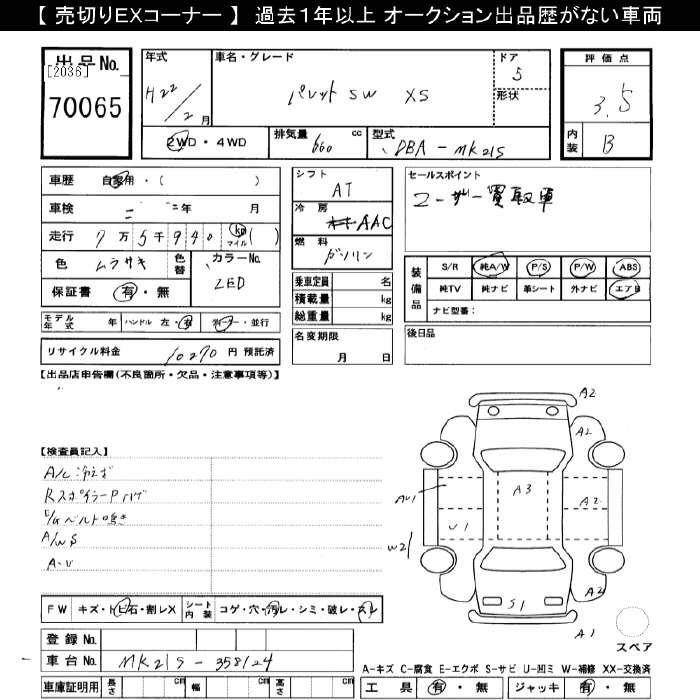 【 売切りEXコーナー 】 過去1年以上 オークション出品歴がない車両
出品No.
[2036]
70065
年式
H22/2月
車名・グレード
パレット SW XS
ドア
5
形状
評価点
3.5
内装
B
2WD・4WD
排気量 660 cc
型式 DBA-MK21S
車歴 自家用・( )
車検 年 月
走行 7万5千940 km マイル ( )
色 ムラサキ
色替
カラーNo. ZED
保証書 有・無
シフト AT
冷房 AAC
燃料 ガソリン
乗車定員 名
積載量 kg
総重量 kg
名変期限 月 日
セールスポイント
ユーザー買取車
装備品
S/R 純A/W P/S P/W ABS
純TV 純ナビ 革シート 外ナビ エアB
ナビ型番:
後日品
モデル年式 年 ハンドル 左・右 ディーラー・並行
リサイクル料金 10270 円 預託済
【出品店申告欄(不良箇所・欠品・注意事項等)】
【検査員記入】
A/C 冷えず
RスポイラーPハゲ
E/Gベルト鳴き
A/Wキズ
A・U
A2
A2
AU1
A3
A2
U1
W21
A2
S1
A1
スペア
FW キズ・トビ石・割レX シート内装 コゲ・穴・汚レ・シミ・破レ・スレ
登録No.
車台No. MK21S-358124
車庫証明用 長さ cm 幅 cm 高さ cm
A-キズ C-腐食 E-エクボ S-サビ U-凹ミ W-補修 XX-交換済
工具 有・無 ジャッキ 有・無